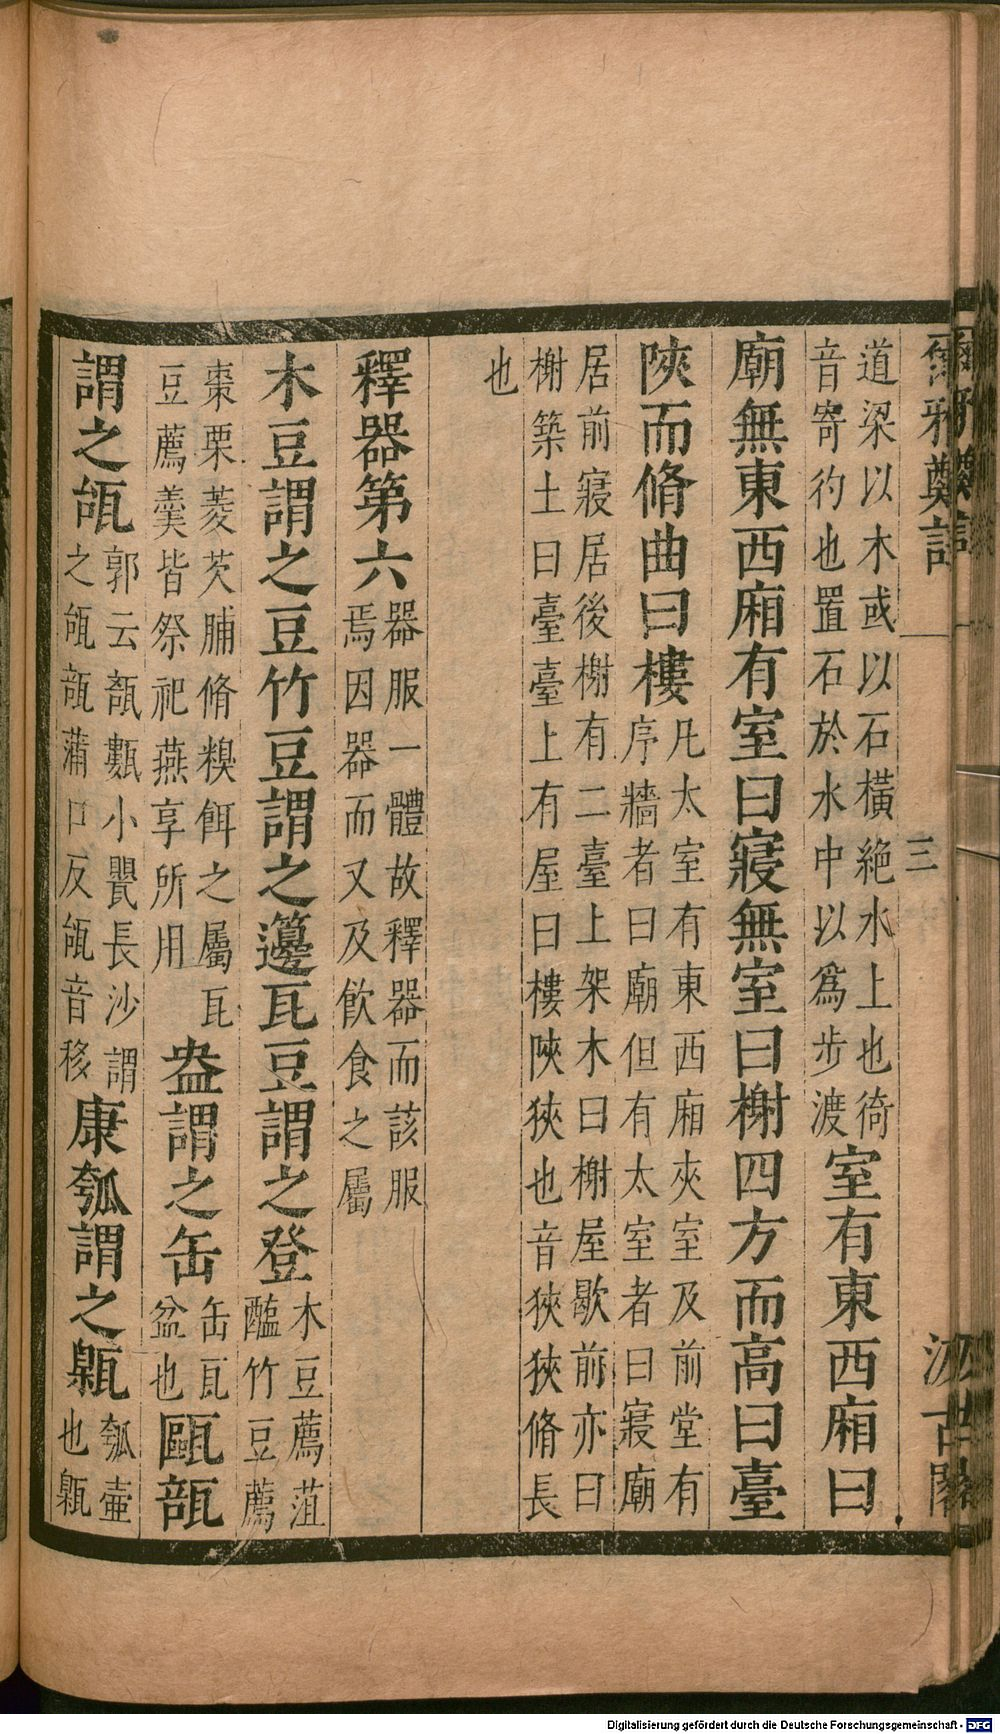 道梁以木或以石橫絶水上也徛
音寄彴也置石於水中以爲步渡
室有東西廂曰
廟無東西廂有室曰寢無室曰榭四方而高曰臺
陜而脩曲曰樓
凡太室有東西廂夾室及前堂有
序牆者曰廟但有太室者曰寢廟
居前寢居後榭有二臺上架木曰榭屋歇前亦曰
榭築土曰臺臺上有屋曰樓陜狹也音狹狹脩長
也
釋器第六
器服一體故釋器而該服
焉因器而又及飮食之屬
木豆謂之豆竹豆謂之籩瓦豆謂之登
木豆薦菹
醢竹豆薦
棗栗菱芡脯脩糗餌之屬瓦
豆薦羹皆祭祀燕享所用
盎謂之缶
缶瓦
盆也
甌瓿
謂之瓵
郭云瓿甊小甖長沙謂
之瓵瓿蒲口反瓵音移
康瓠謂之甈
瓠壷
也甈
爾雅
三
汲古閣
Digitalisierung gefördert durch die Deutsche Forschungsgemeinschaft - DFG